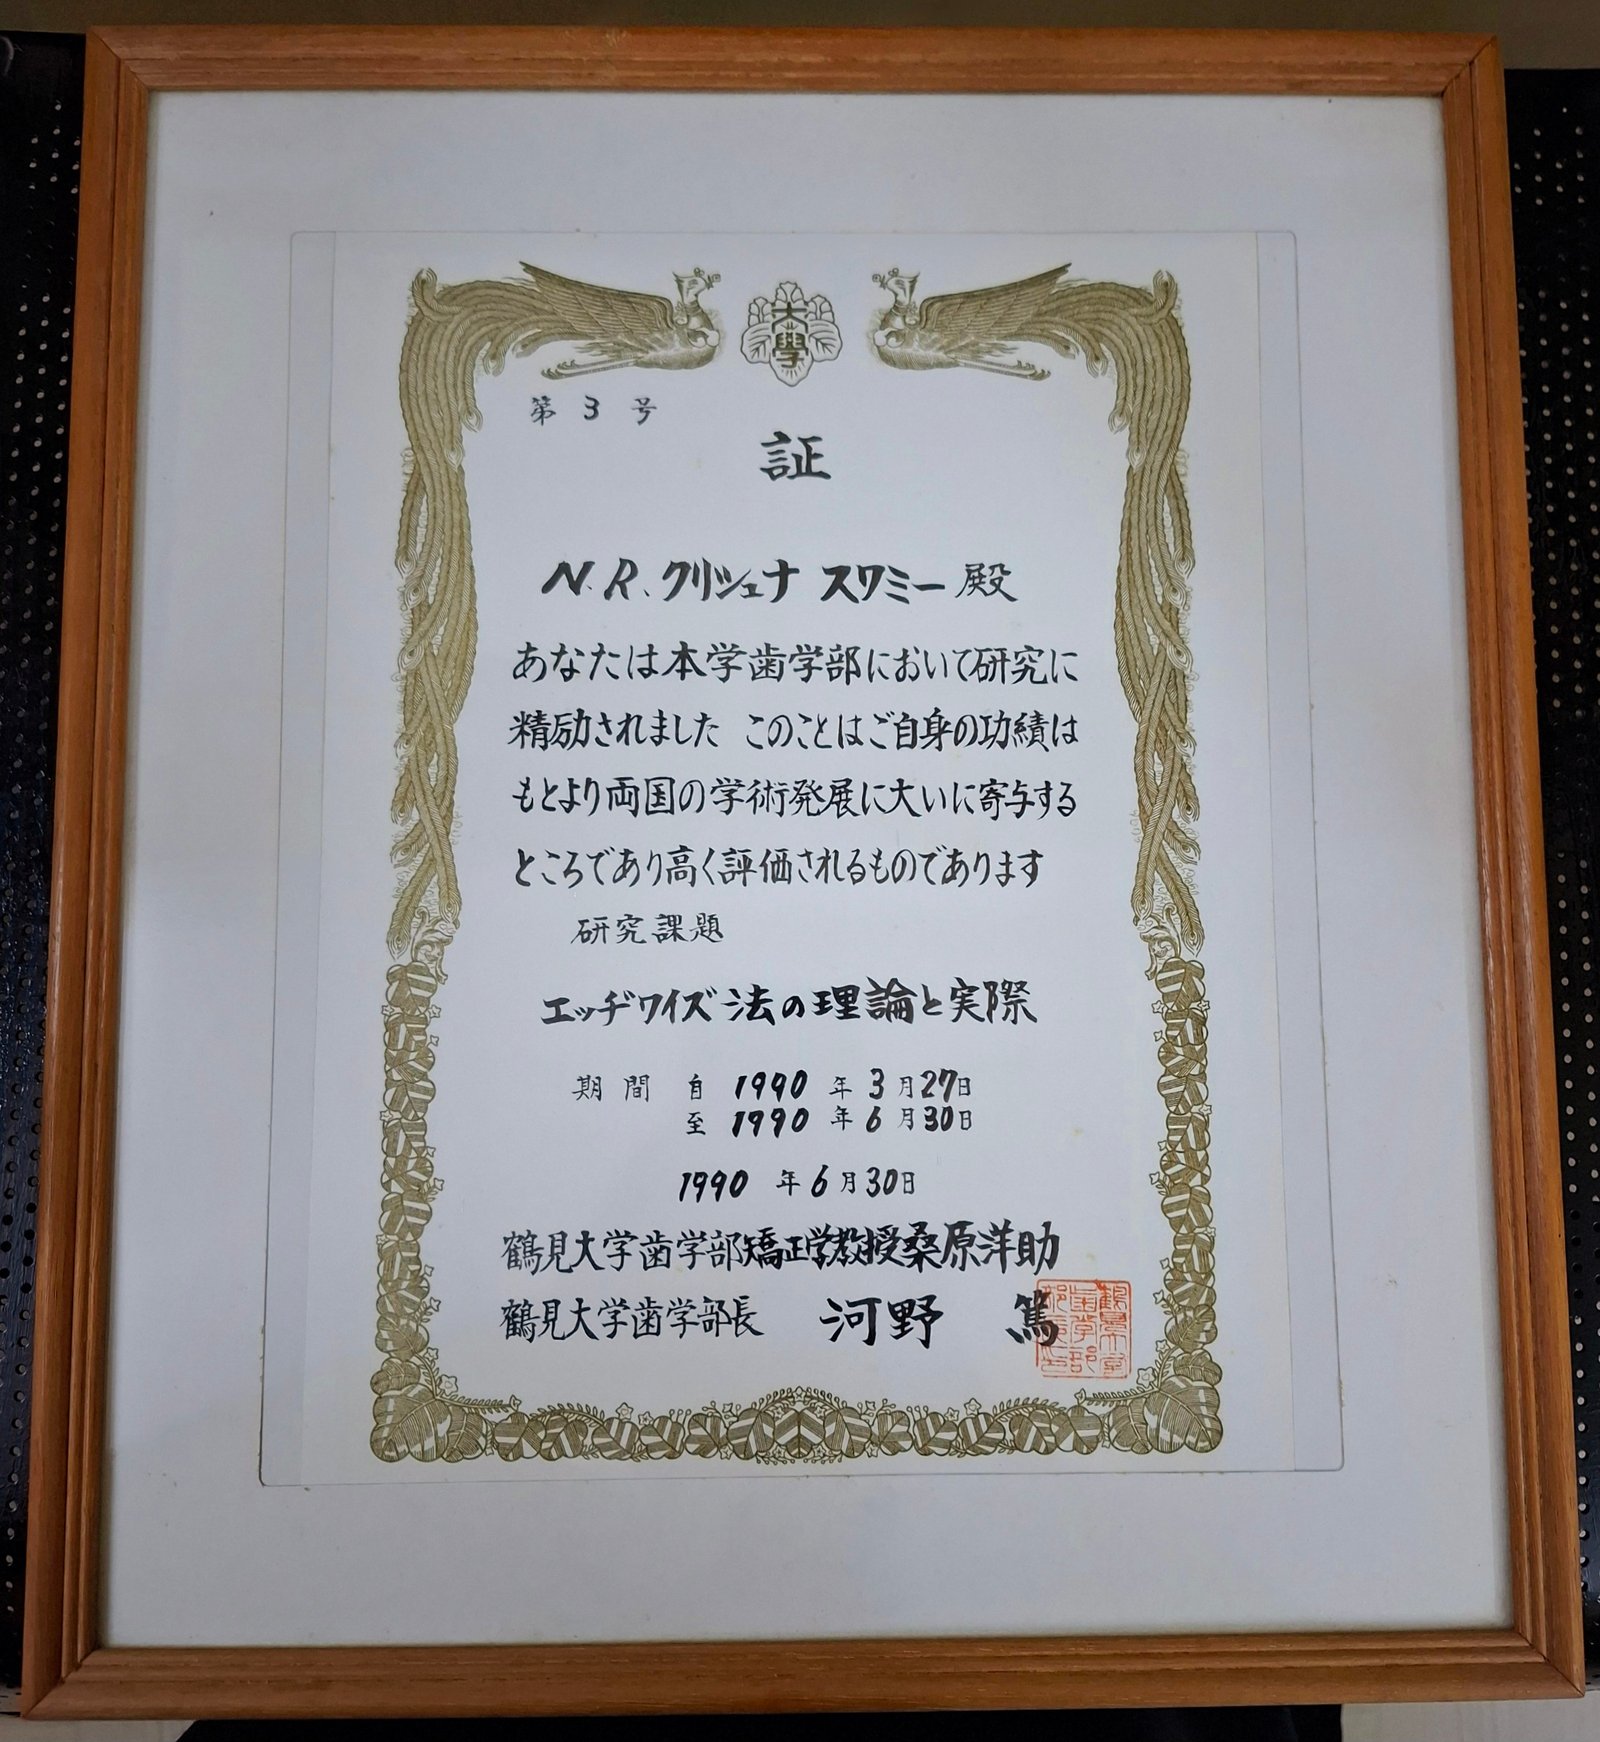 大學
第 3 号
証
N.R.クリシュナ スワミー 殿
あなたは本学歯学部において研究に
精励されました このことはご自身の功績は
もとより両国の学術発展に大いに寄与する
ところであり高く評価されるものであります
研究課題
エッヂワイズ法の理論と実際
期 間 自 1990 年 3 月 27日
至 1990 年 6 月 30日
1990 年 6 月 30日
鶴見大学歯学部矯正学教授桑原洋助
鶴見大学歯学部長 河野 篤